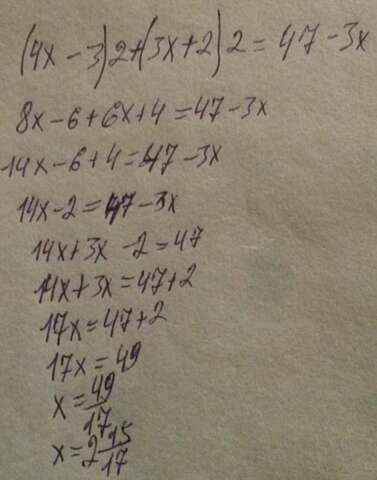 (4x-3)2+(3x+2)2=47-3x
8x-6+6x+4=47-3x
14x-6+4=47-3x
14x-2=47-3x
14x+3x-2=47
14x+3x=47+2
17x=47+2
17x=49
x=49/17
x=2 15/17